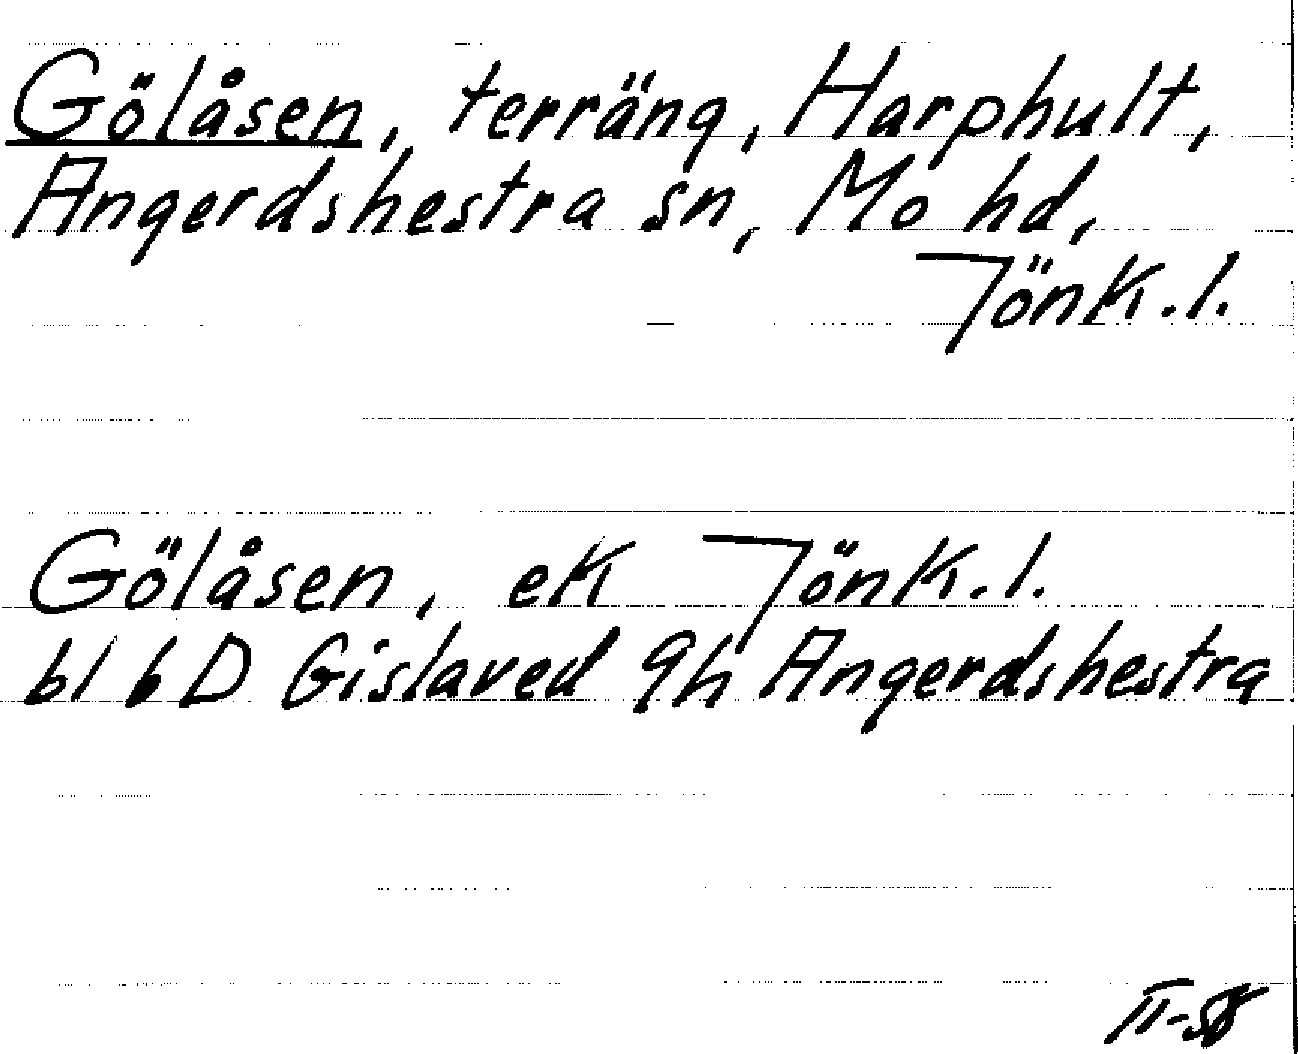 Gölåsen, terräng, Harphult,
Angerdshestra sn, Mo hd,
Jönk.l.
Gölåsen, ek Jönk.l.
bl 6D Gislaved 9h Angerdshestra